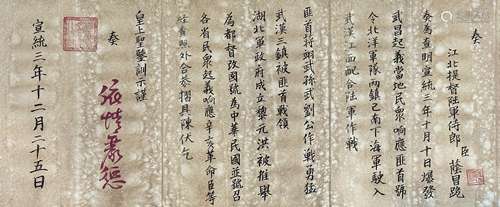 奏
江北提督陸軍侍郎 臣 蔭昌跪
奏為查明宣統三年十月十日爆發
武昌起義當地民衆響應匪首號
令北洋軍隊兩鎮已南下海軍駛入
武漢江面配合陸軍作戰
匪首將蝴武 武劉公作戰勇猛
武漢三鎮被匪首戰領
湖北軍政府成立黎元洪被推舉
為都督改國號為中華民國並號召
各省民衆起義響應辛亥革命臣等
經查照外合恭摺具陳伏乞
皇上聖鑒訓示謹
奏
宣統三年十二月二十五日